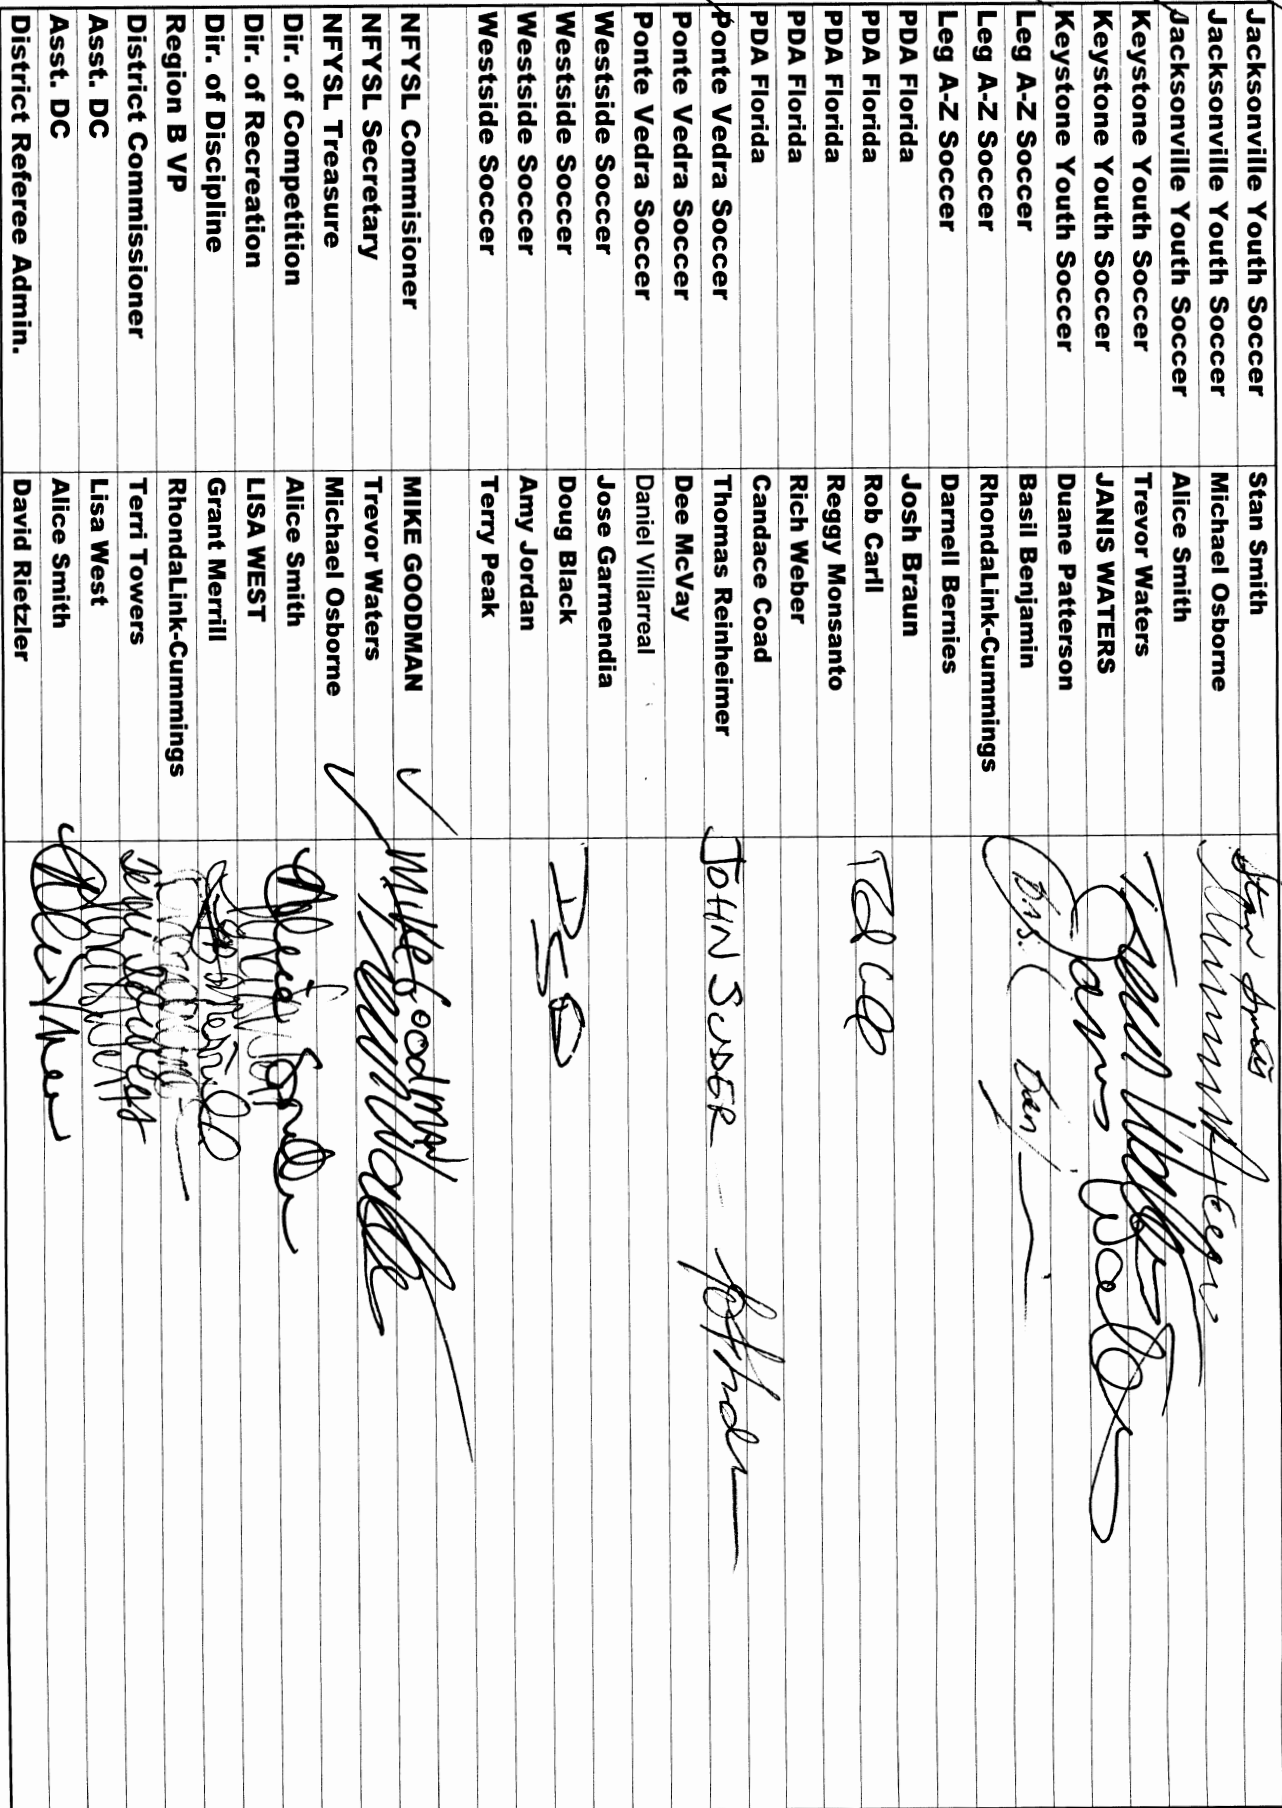 Jacksonville Youth Soccer Stan Smith Stan Smith
Jacksonville Youth Soccer Michael Osborne
Jacksonville Youth Soccer Alice Smith
Keystone Youth Soccer Trevor Waters Trevor Waters
Keystone Youth Soccer JANIS WATERS Janis Waters
Keystone Youth Soccer Duane Patterson
Leg A-Z Soccer Basil Benjamin
Leg A-Z Soccer RhondaLink-Cummings
Leg A-Z Soccer Darnell Bernies
PDA Florida Josh Braun
PDA Florida Rob Carll
PDA Florida Reggy Monsanto
PDA Florida Rich Weber
PDA Florida Candace Coad
Ponte Vedra Soccer Thomas Reinheimer JOHN SUDER
Ponte Vedra Soccer Dee McVay
Ponte Vedra Soccer Daniel Villarreal
Westside Soccer Jose Garmendia
Westside Soccer Doug Black
Westside Soccer Amy Jordan
Westside Soccer Terry Peak
NFYSL Commisioner MIKE GOODMAN ✓ Mike Goodman
NFYSL Secretary Trevor Waters Trevor Waters
NFYSL Treasure Michael Osborne ✓
Dir. of Competition Alice Smith Alice Smith
Dir. of Recreation LISA WEST
Dir. of Discipline Grant Merrill
Region B VP RhondaLink-Cummings
District Commissioner Terri Towers
Asst. DC Lisa West
Asst. DC Alice Smith
District Referee Admin. David Rietzler